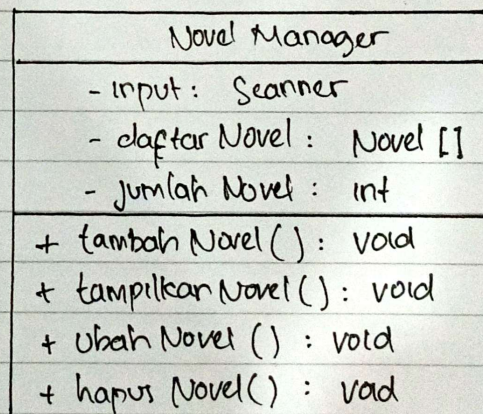 Novel Manager
- input : Scanner
- daftar Novel : Novel []
- jumlah Novel : int
+ tambah Novel () : void
+ tampilkan Novel () : void
+ Ubah Novel () : void
+ hapus Novel () : void